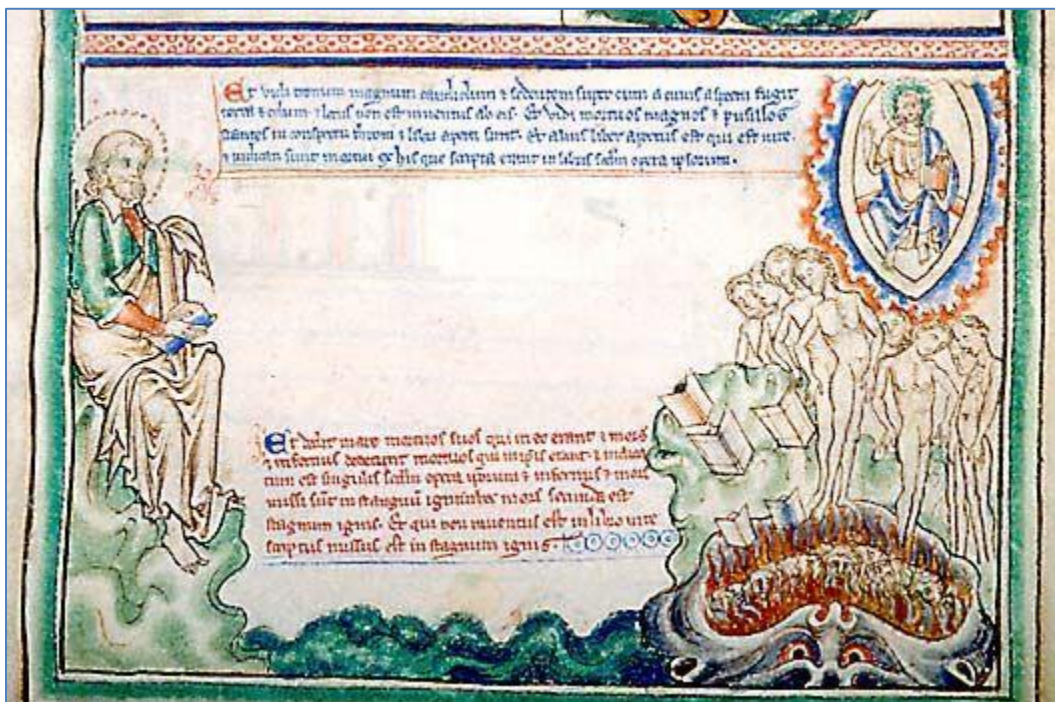 Et vidi tronum magnum candidum ⁊ sedentem super eum a cuius aspectu fugit
terra ⁊ celum ⁊ locus non est inuentus ab eis. Et vidi mortuos magnos ⁊ pusillos
stantes in conspectu throni ⁊ libri aperti sunt. Et alius liber apertus est qui est uite.
⁊ iudicati sunt mortui ex his que scripta erant in libris scdm opera ipsorum.
Et dedit mare mortuos suos qui in eo erant ⁊ mors
⁊ infernus dederunt mortuos qui in ipsis erant ⁊ iudica
tum est singulis scdm opera ipsorum ⁊ infernus ⁊ mors
missi sūt in stangnum ignis hec mors secunda est
stagnum ignis. Et qui non inuentus est in libro uite
scriptus missus est in stagnum ignis.